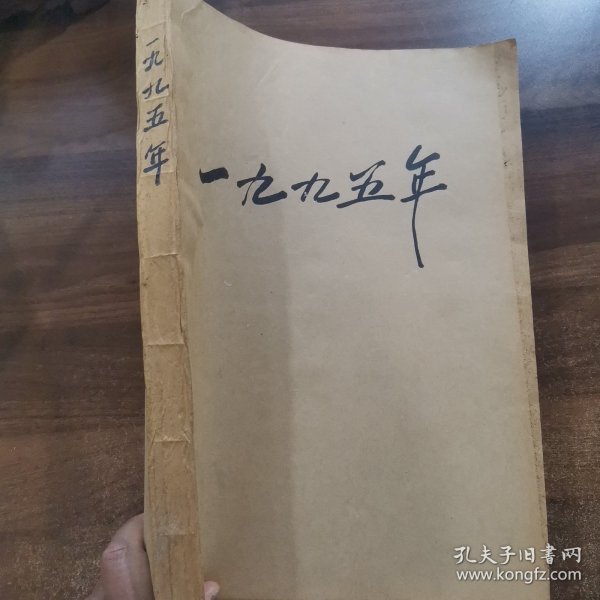 一九九五年
一九九五年
孔夫子旧书网
www.kongfz.com